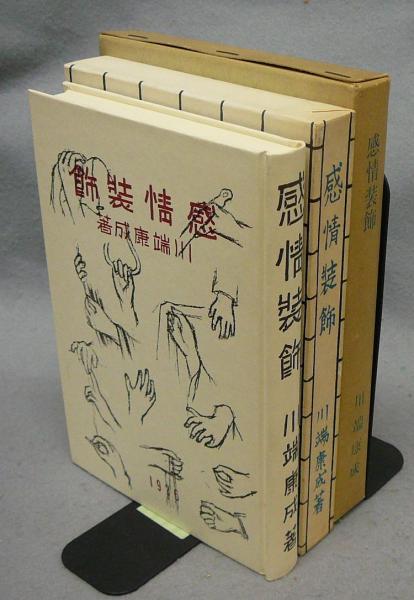 感情装飾
川端康成著
1926
感情装飾 川端康成著
感情装飾 川端康成著
感情装飾 川端康成